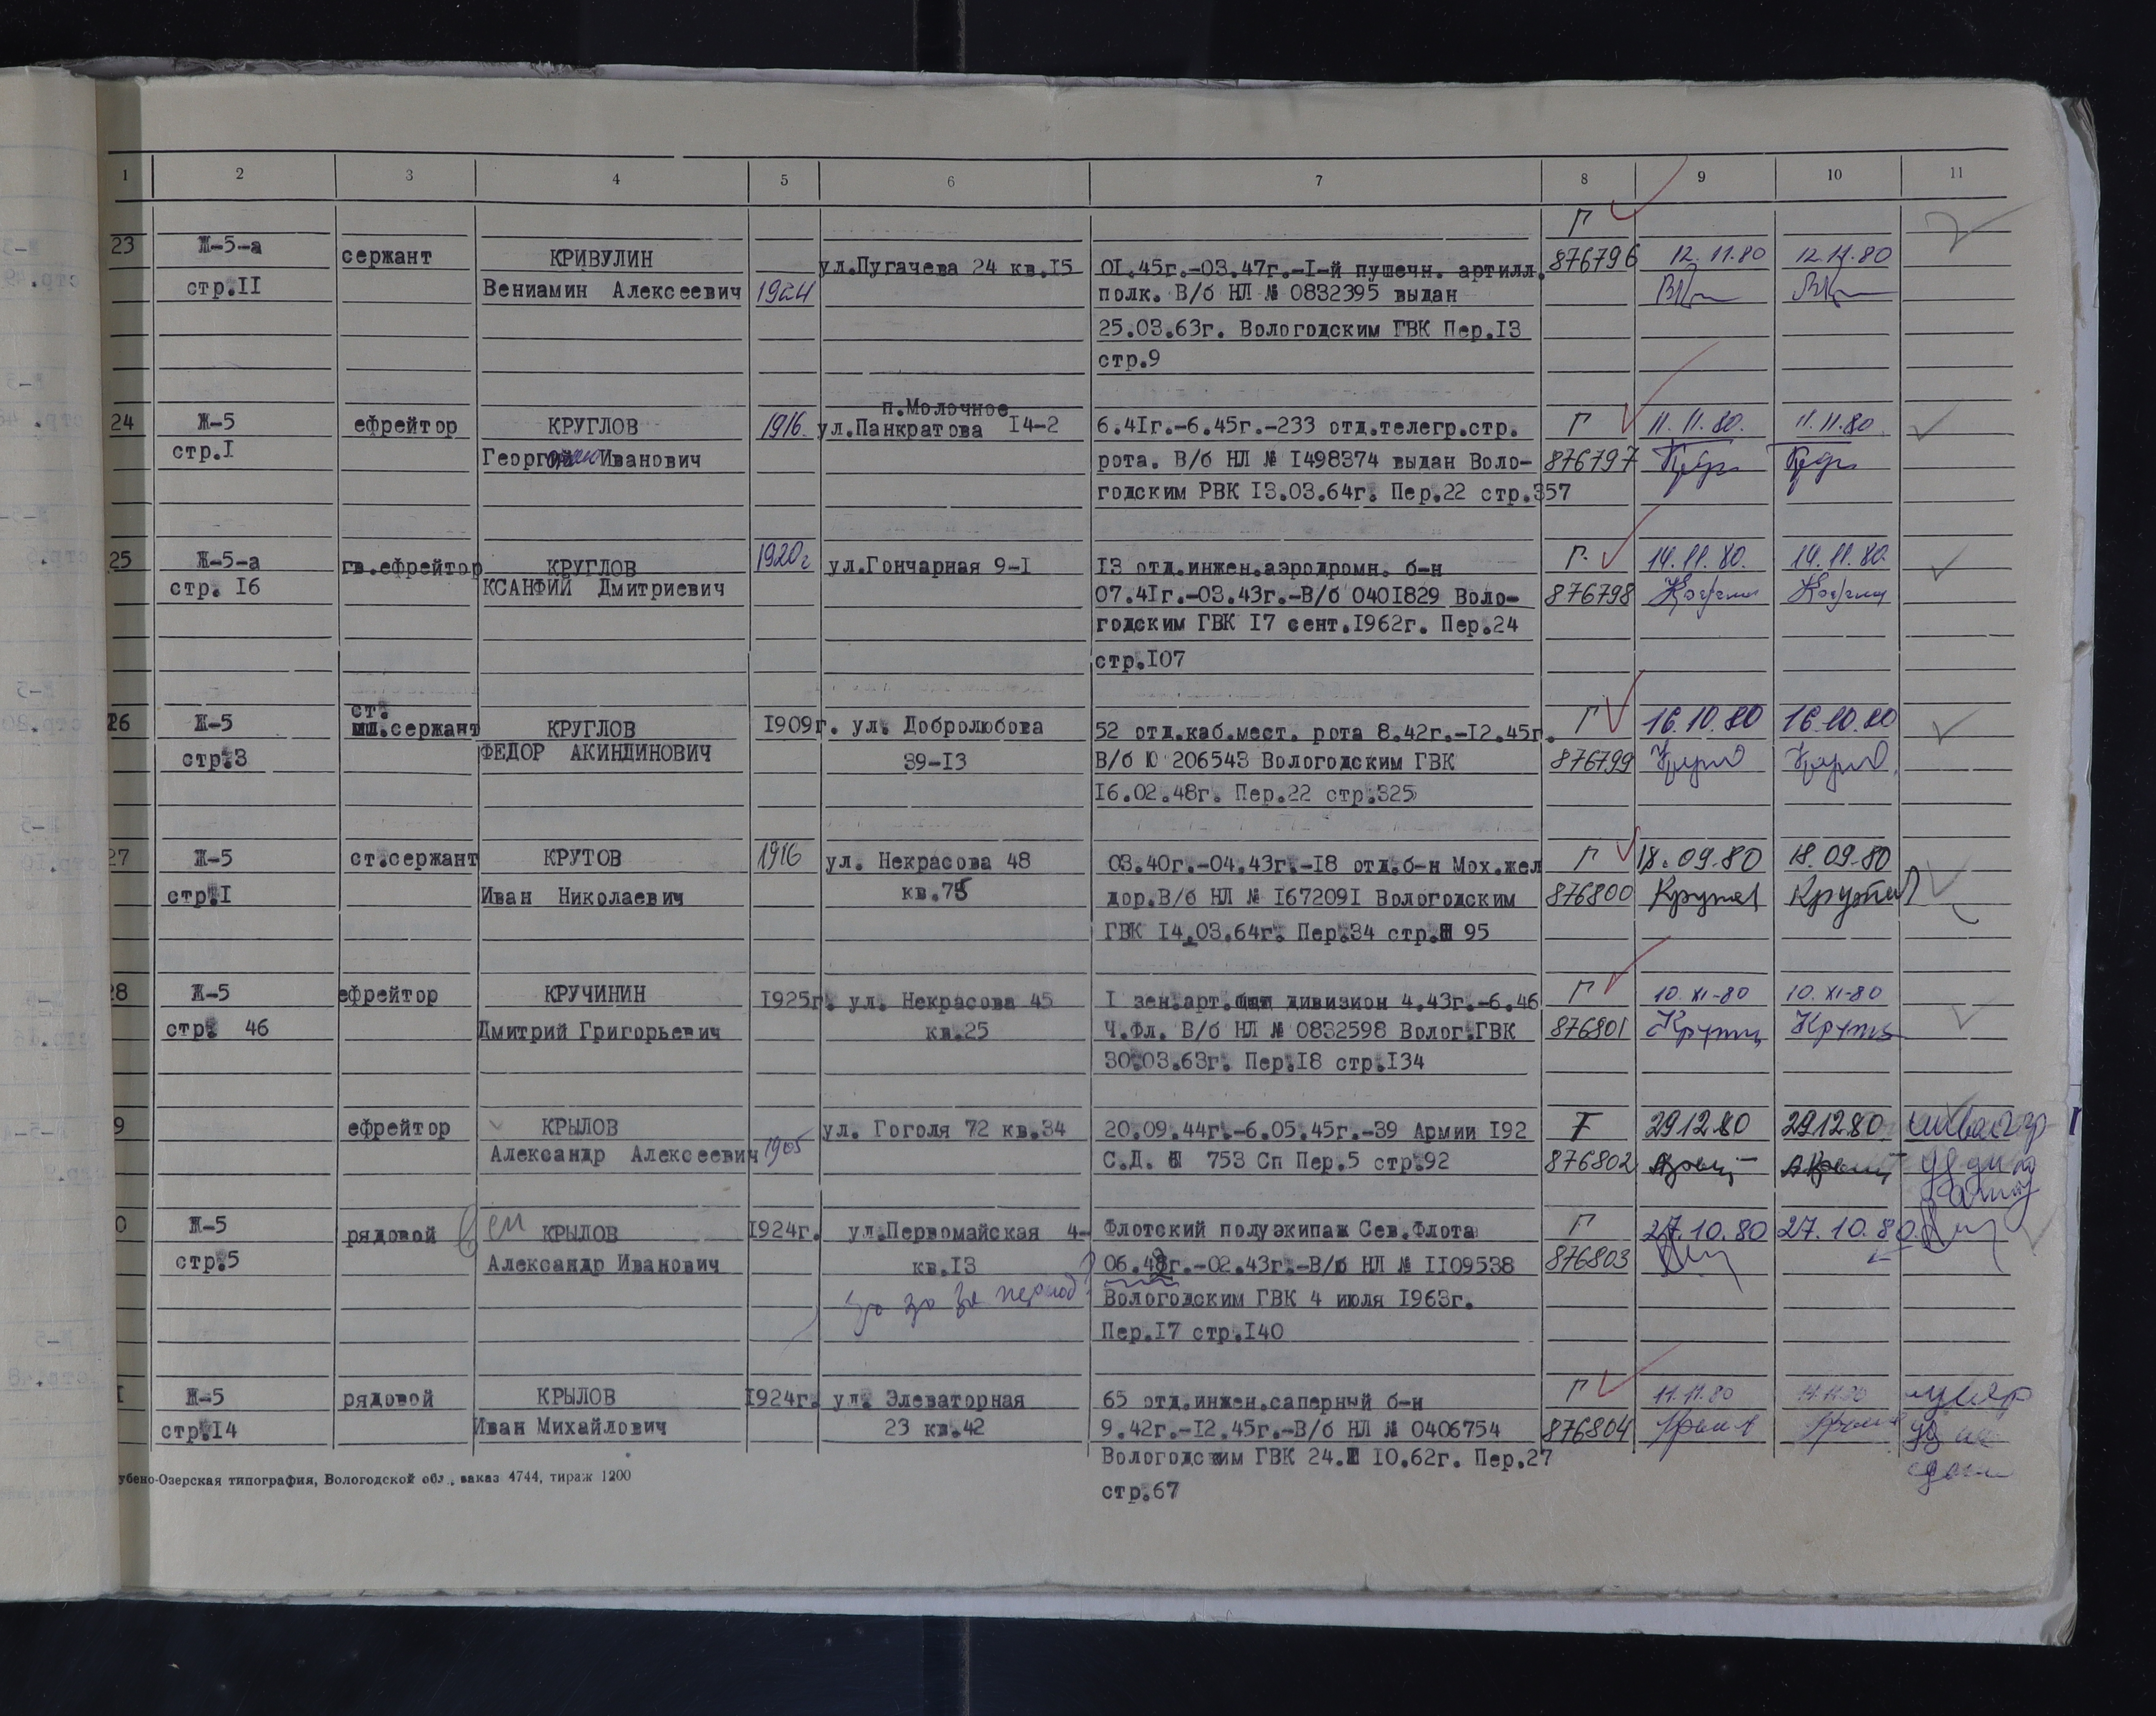 1 2 3 4 5 6 7 8 9 10 11
Г
23 Ж-5-а сержант КРИВУЛИН ул.Пугачева 24 кв.I5 0I.45г.-03.47г.-I-й пушечн. артилл. 876796 12.11.80 12.11.80
стр.II Вениамин Алексеевич 1924 полк. В/б НЛ № 0832395 выдан
25.03.63г. Вологодским ГВК Пер.I3
стр.9
п.Молочное
24 Ж-5 ефрейтор КРУГЛОВ 1916. ул.Панкратова I4-2 6.4Iг.-6.45г.-233 отд.телегр.стр. Г 11.11.80. 11.11.80
стр.I Иванович рота. В/б НЛ № I498374 выдан Воло- 876797
годским РВК I3.03.64г. Пер.22 стр.357
25 Ж-5-а гв.ефрейтор КРУГЛОВ 1920г ул.Гончарная 9-I I3 отд.инжен.аэродромн. б-н Г. 14.11.80. 14.11.80.
стр. I6 КСАНФИЙ Дмитриевич 07.4Iг.-03.43г.-В/б 040I829 Воло- 876798
годским ГВК I7 сент.I962г. Пер.24
стр.I07
ст.
26 Ж-5 сержант КРУГЛОВ I909г. ул. Добролюбова 52 отд.каб.мест. рота 8.42г.-I2.45г. Г 16.10.80 16.10.80
стр.3 ФЕДОР АКИНДИНОВИЧ 39-I3 В/б Ю 206543 Вологодским ГВК 876799
I6.02.48г. Пер.22 стр.325
27 Ж-5 ст.сержант КРУТОВ 1916 ул. Некрасова 48 03.40г.-04.43г.-I8 отд.б-н Мох.жел Г 18.09.80 18.09.80
стр.I Иван Николаевич кв.75 дор.В/б НЛ № I67209I Вологодским 876800
ГВК I4.03.64г. Пер.34 стр. 95
28 Ж-5 ефрейтор КРУЧИНИН I925г. ул. Некрасова 45 I зен.арт. дивизион 4.43г.-6.46 Г 10.XI-80 10.XI-80
стр. 46 Дмитрий Григорьевич кв.25 Ч.Фл. В/б НЛ № 0832598 Волог.ГВК 876801
30.03.63г. Пер.I8 стр.I34
9 ефрейтор КРЫЛОВ ул. Гоголя 72 кв.34 20.09.44г.-6.05.45г.-39 Армии I92 Г 29.12.80 29.12.80
Александр Алексеевич 1905 С.Д. 753 Сп Пер.5 стр.92 876802
0 Ж-5 рядовой КРЫЛОВ I924г. ул.Первомайская 4- Флотский полуэкипаж Сев.Флота Г 27.10.80 27.10.80.
стр.5 Александр Иванович кв.I3 г.-02.43г.-В/б НЛ № II09538 876803
период Вологодским ГВК 4 июля I963г.
Пер.I7 стр.I40
I Ж-5 рядовой КРЫЛОВ I924г. ул. Элеваторная 65 отд.инжен.саперный б-н Г 11.11.80 11.11.80
стр.I4 Иван Михайлович 23 кв.42 9.42г.-I2.45г.-В/б НЛ № 0406754 876804
Вологодским ГВК 24. I0.62г. Пер.27
стр.67
убено-Озерская типография, Вологодской обл., заказ 4744, тираж 1200